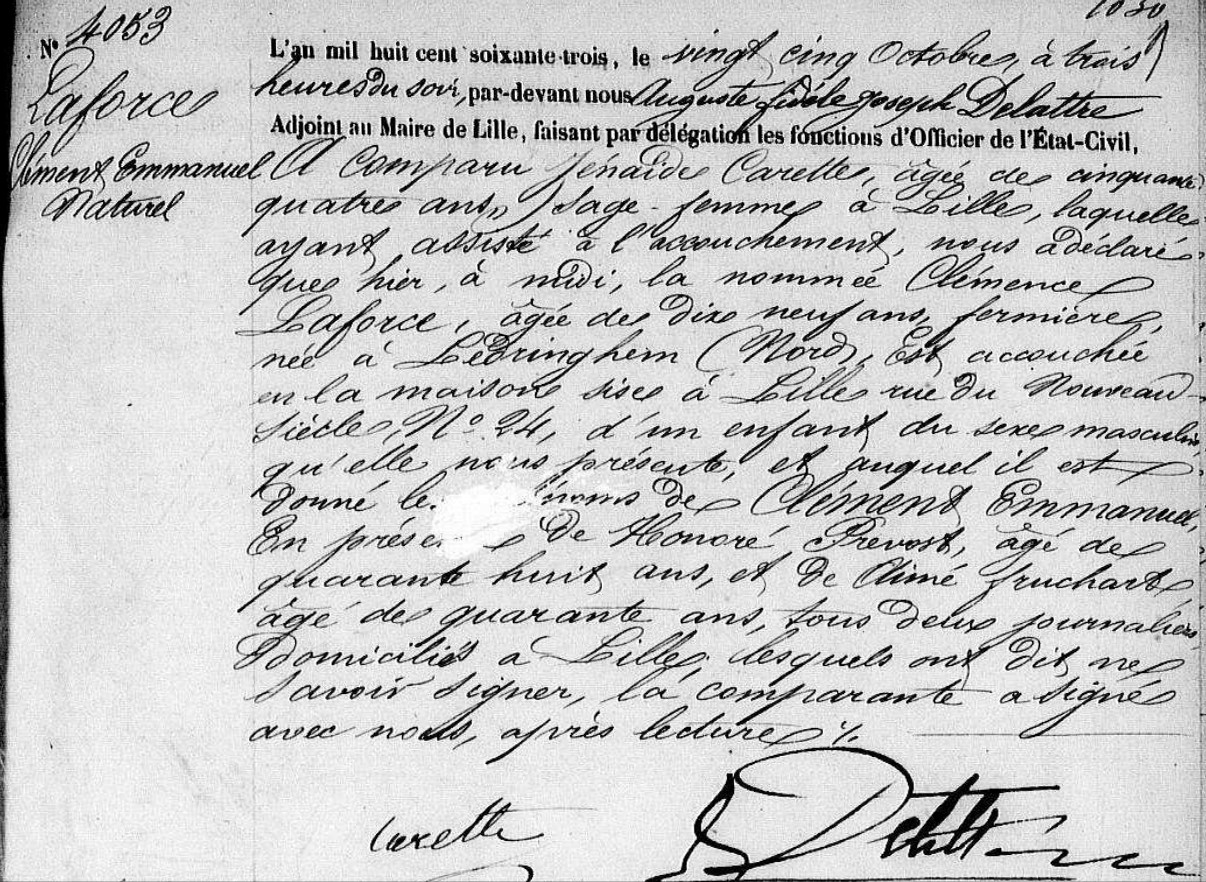 N° 4053
Laforce
Clément Emmanuel
Naturel
L'an mil huit cent soixante-trois, le vingt cinq Octobre, à trois
heures du soir, par-devant nous Auguste fidèle Joseph Delattre
Adjoint au Maire de Lille, faisant par délégation les fonctions d'Officier de l'État-Civil,
A Comparu Zénaïde Carette, âgée de cinquante
quatre ans, sage-femme à Lille, laquelle
ayant assisté à l'accouchement, nous a déclaré
que hier, à midi, la nommée Clémence
Laforce, âgée de dix neuf ans, fermière,
née à Lédringhem (Nord), Est accouchée
en la maison sise à Lille rue du Nouveau-
Siècle, N° 24, d'un enfant du sexe masculin,
qu'elle nous présente, et auquel il est
donné le noms de Clément Emmanuel,
En prése de Honoré Prevost, âgé de
quarante huit ans, et de Aimé fruchart,
âgé de quarante ans, tous deux journaliers,
domiciliés à Lille, lesquels ont dit ne
savoir signer, la comparante a signé
avec nous, après lecture ./.
Carette
Delattre